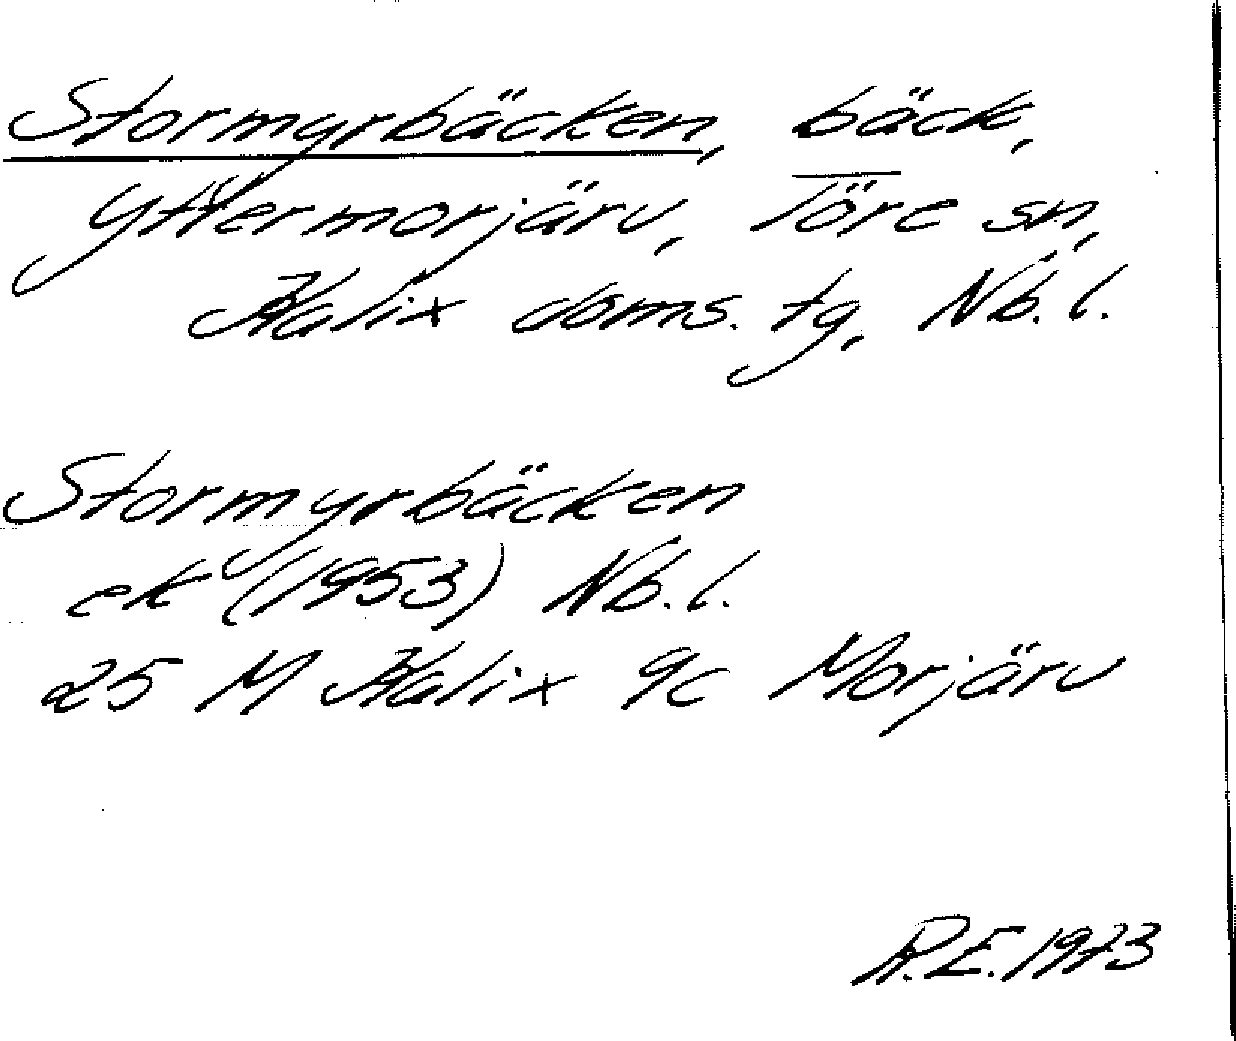 Stormyrbäcken, bäck,
Yttermorjärv, Töre sn,
Kalix doms. tg, Nb. l.
Stormyrbäcken
ek (1953) Nb. l.
25 M Kalix 9c Morjärv
R.E. 1973